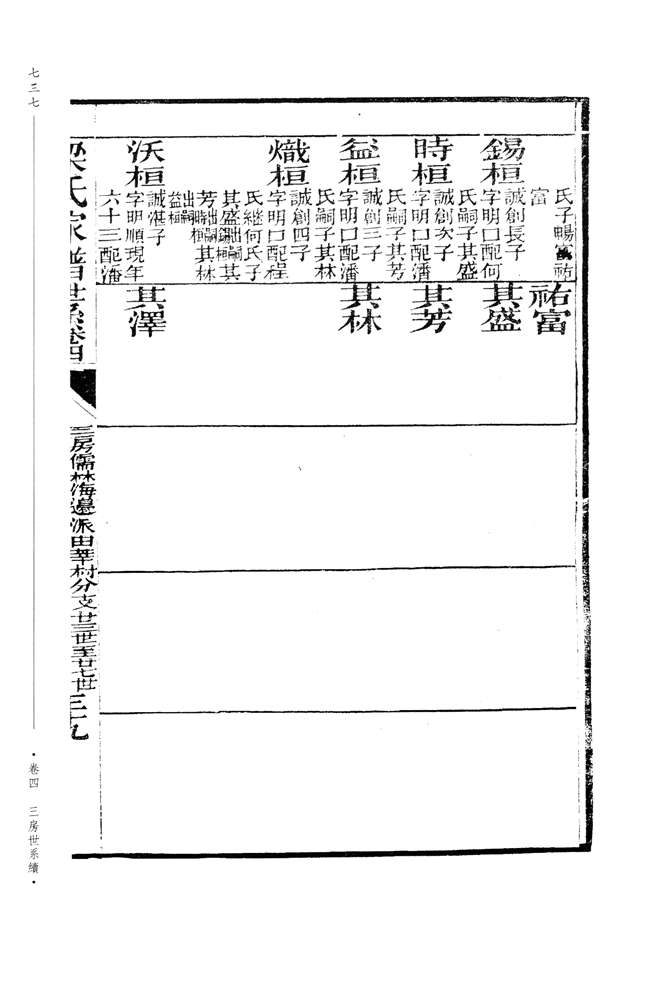 氏子暢富祐
富
祐富
錫桓
誠創長子
字明口配何
氏嗣子其盛
其盛
時桓
誠創次子
字明口配潘
氏嗣子其芳
其芳
益桓
誠創三子
字明口配潘
氏嗣子其林
其林
熾桓
誠創四子
字明口配程
氏繼何氏子
其盛出嗣
錫桓其
芳出嗣
時桓其林
出嗣
益桓
沃桓
誠湛子
字明順現年
六十三配潘
其澤
梁氏家譜世系卷四
三房儒林海邊派由莘村分支廿三世至廿七世
三十九
七三七
·卷四 三房世系續·